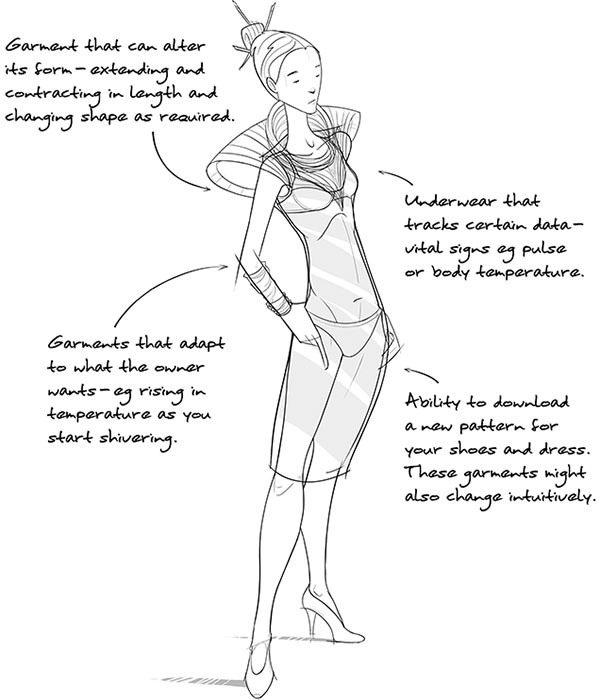 Garment that can alter
its form – extending and
contracting in length and
changing shape as required.
Underwear that
tracks certain data –
vital signs eg pulse
or body temperature.
Garments that adapt
to what the owner
wants – eg rising in
temperature as you
start shivering.
Ability to download
a new pattern for
your shoes and dress.
These garments might
also change intuitively.